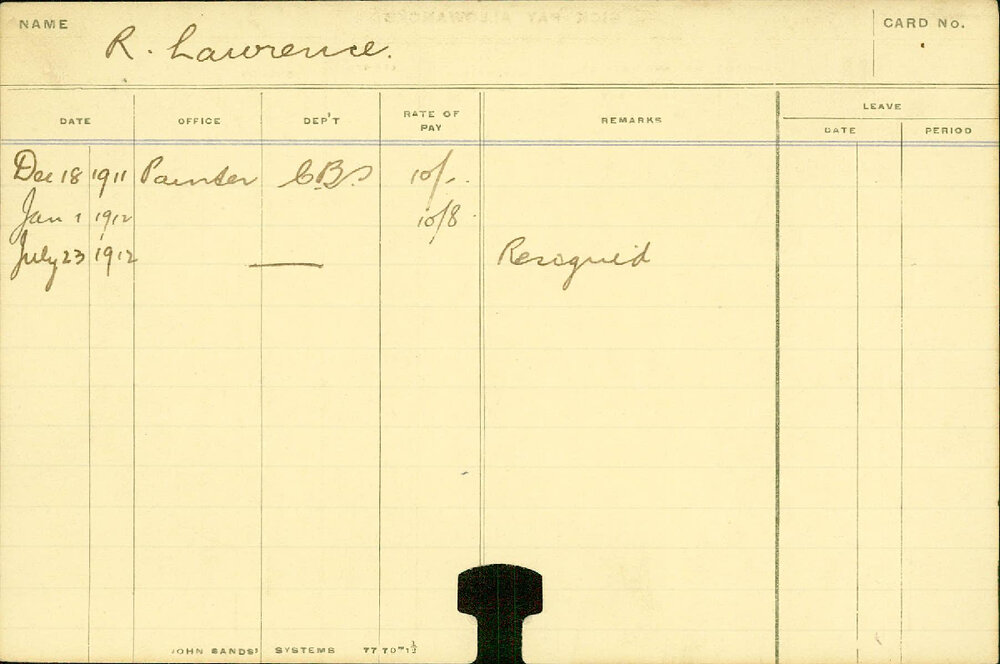 NAME R. Lawrence. CARD No.
DATE OFFICE DEP'T RATE OF PAY REMARKS LEAVE
DATE PERIOD
Dec 18 1911 Painter 10/-
Jan 1 1912 10/8
July 23 1912 Resigned
JOHN SANDS' SYSTEMS